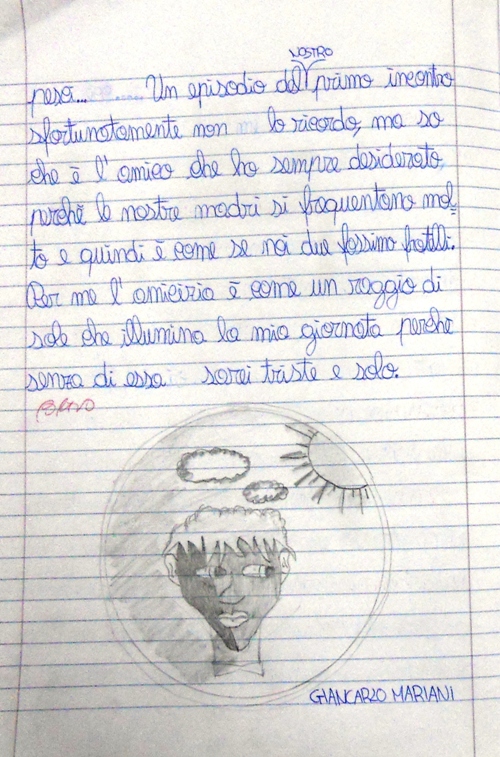 NOSTRO
pesa... Un episodio del primo incontro
sfortunatamente non lo ricordo, ma so
che è l'amico che ho sempre desiderato,
perché le nostre madri si frequentano mol=
to e quindi è come se noi due fossimo fratelli.
Per me l'amicizia è come un raggio di
sole che illumina la mia giornata perché
senza di essa sarei triste e solo.
BRAVO
GIANCARLO MARIANI